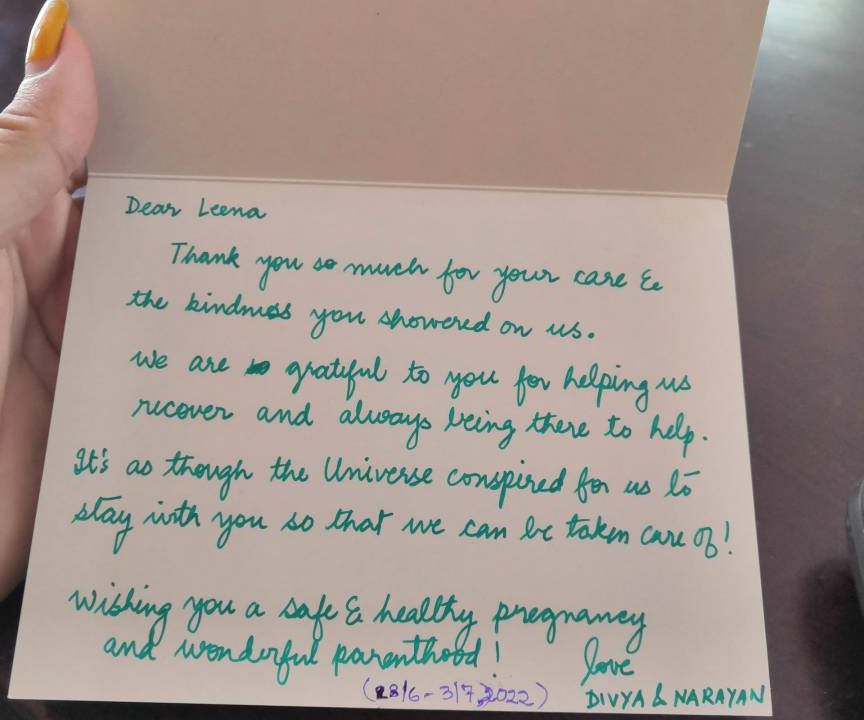 Dear Leena
Thank you so much for your care &
the kindness you showered on us.
We are so grateful to you for helping us
recover and always being there to help.
It's as though the Universe conspired for us to
stay with you so that we can be taken care of!
Wishing you a safe & healthy pregnancy
and wonderful parenthood!
love
(28/6-3/7,2022)
DIVYA & NARAYAN